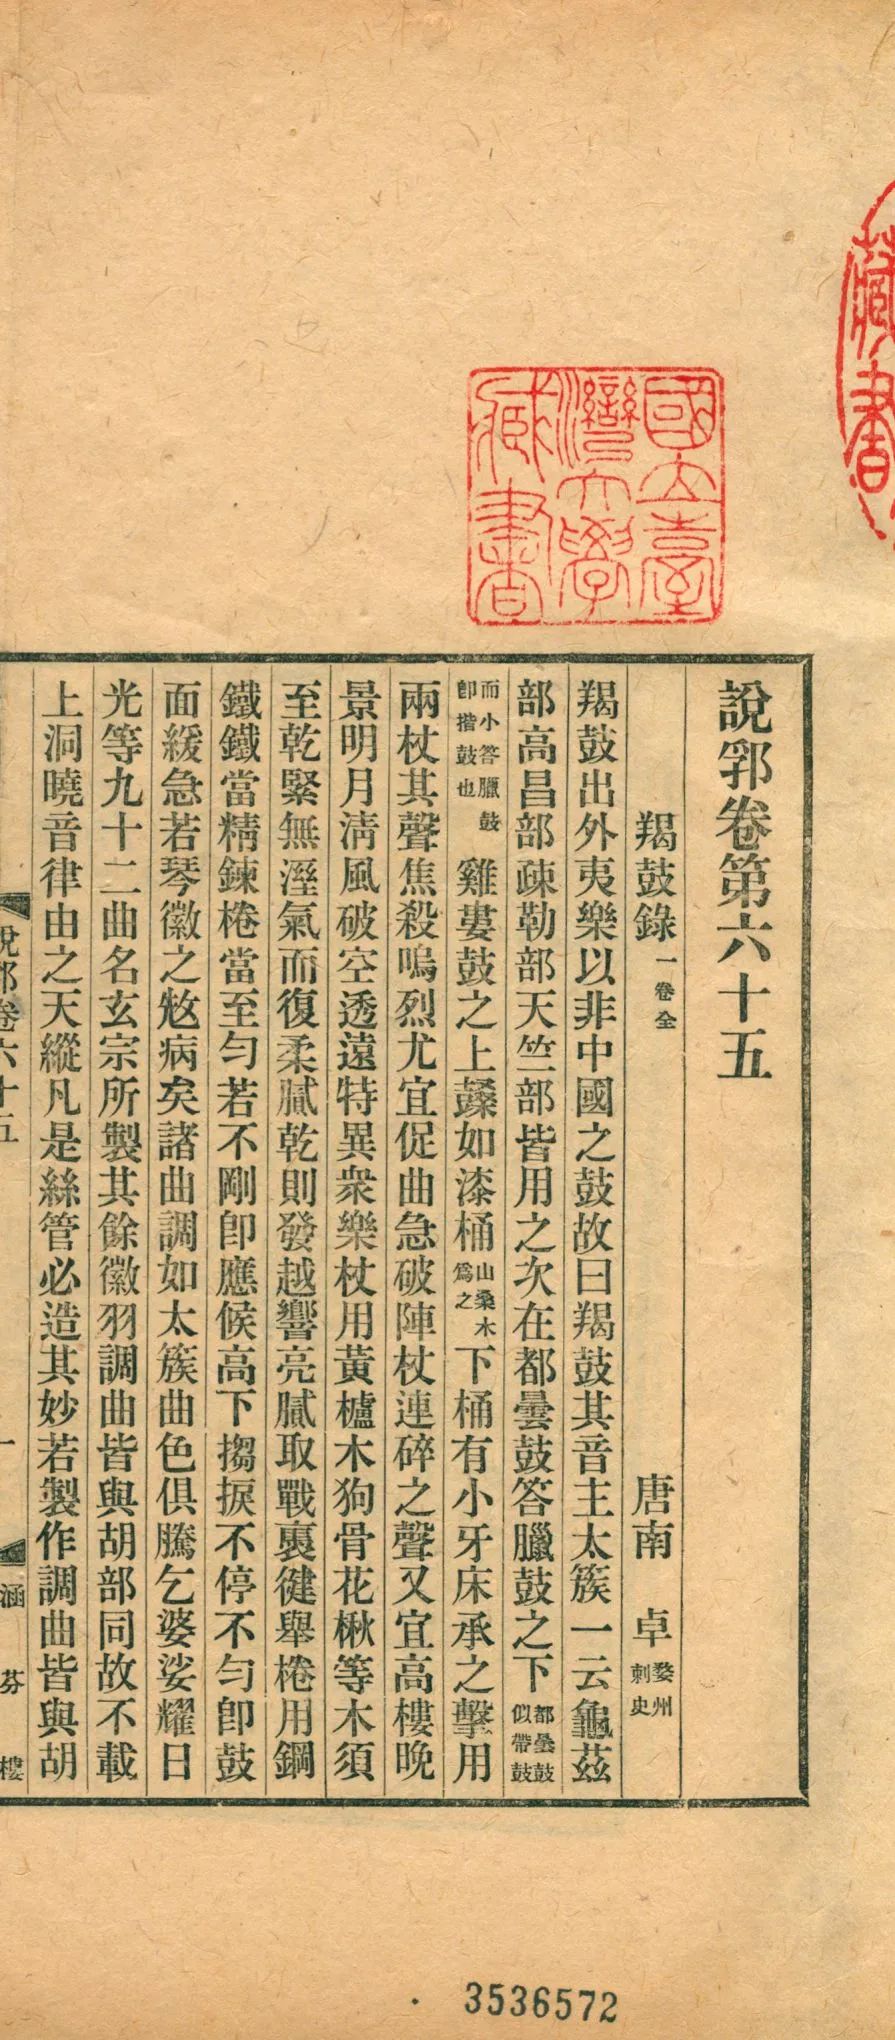 說郛卷第六十五
羯鼓錄一卷全 唐南 卓婺州刺史
羯鼓出外夷樂以非中國之鼓故曰羯鼓其音主太簇一云龜茲
部高昌部疎勒部天竺部皆用之次在都曇鼓答臘鼓之下都曇鼓似帶鼓
而小答臘鼓卽揩鼓也雞婁鼓之上𪔣如漆桶山桑木爲之下桶有小牙床承之擊用
兩杖其聲焦殺嗚烈尤宜促曲急破陣杖連碎之聲又宜高樓晚
景明月清風破空透遠特異衆樂杖用黃櫨木狗骨花楸等木須
至乾緊無溼氣而復柔膩乾則發越響亮膩取戰裏健舉棬用鋼
鐵鐵當精鍊棬當至勻若不剛卽應候高下搊捩不停不勻卽鼓
面緩急若琴徽之𤺺病矣諸曲調如太簇曲色俱騰乞婆娑耀日
光等九十二曲名玄宗所製其餘徽羽調曲皆與胡部同故不載
上洞曉音律由之天縱凡是絲管必造其妙若製作調曲皆與胡
說郛卷六十五
一
涵芬樓
國立臺灣大學藏書
藏書
3536572